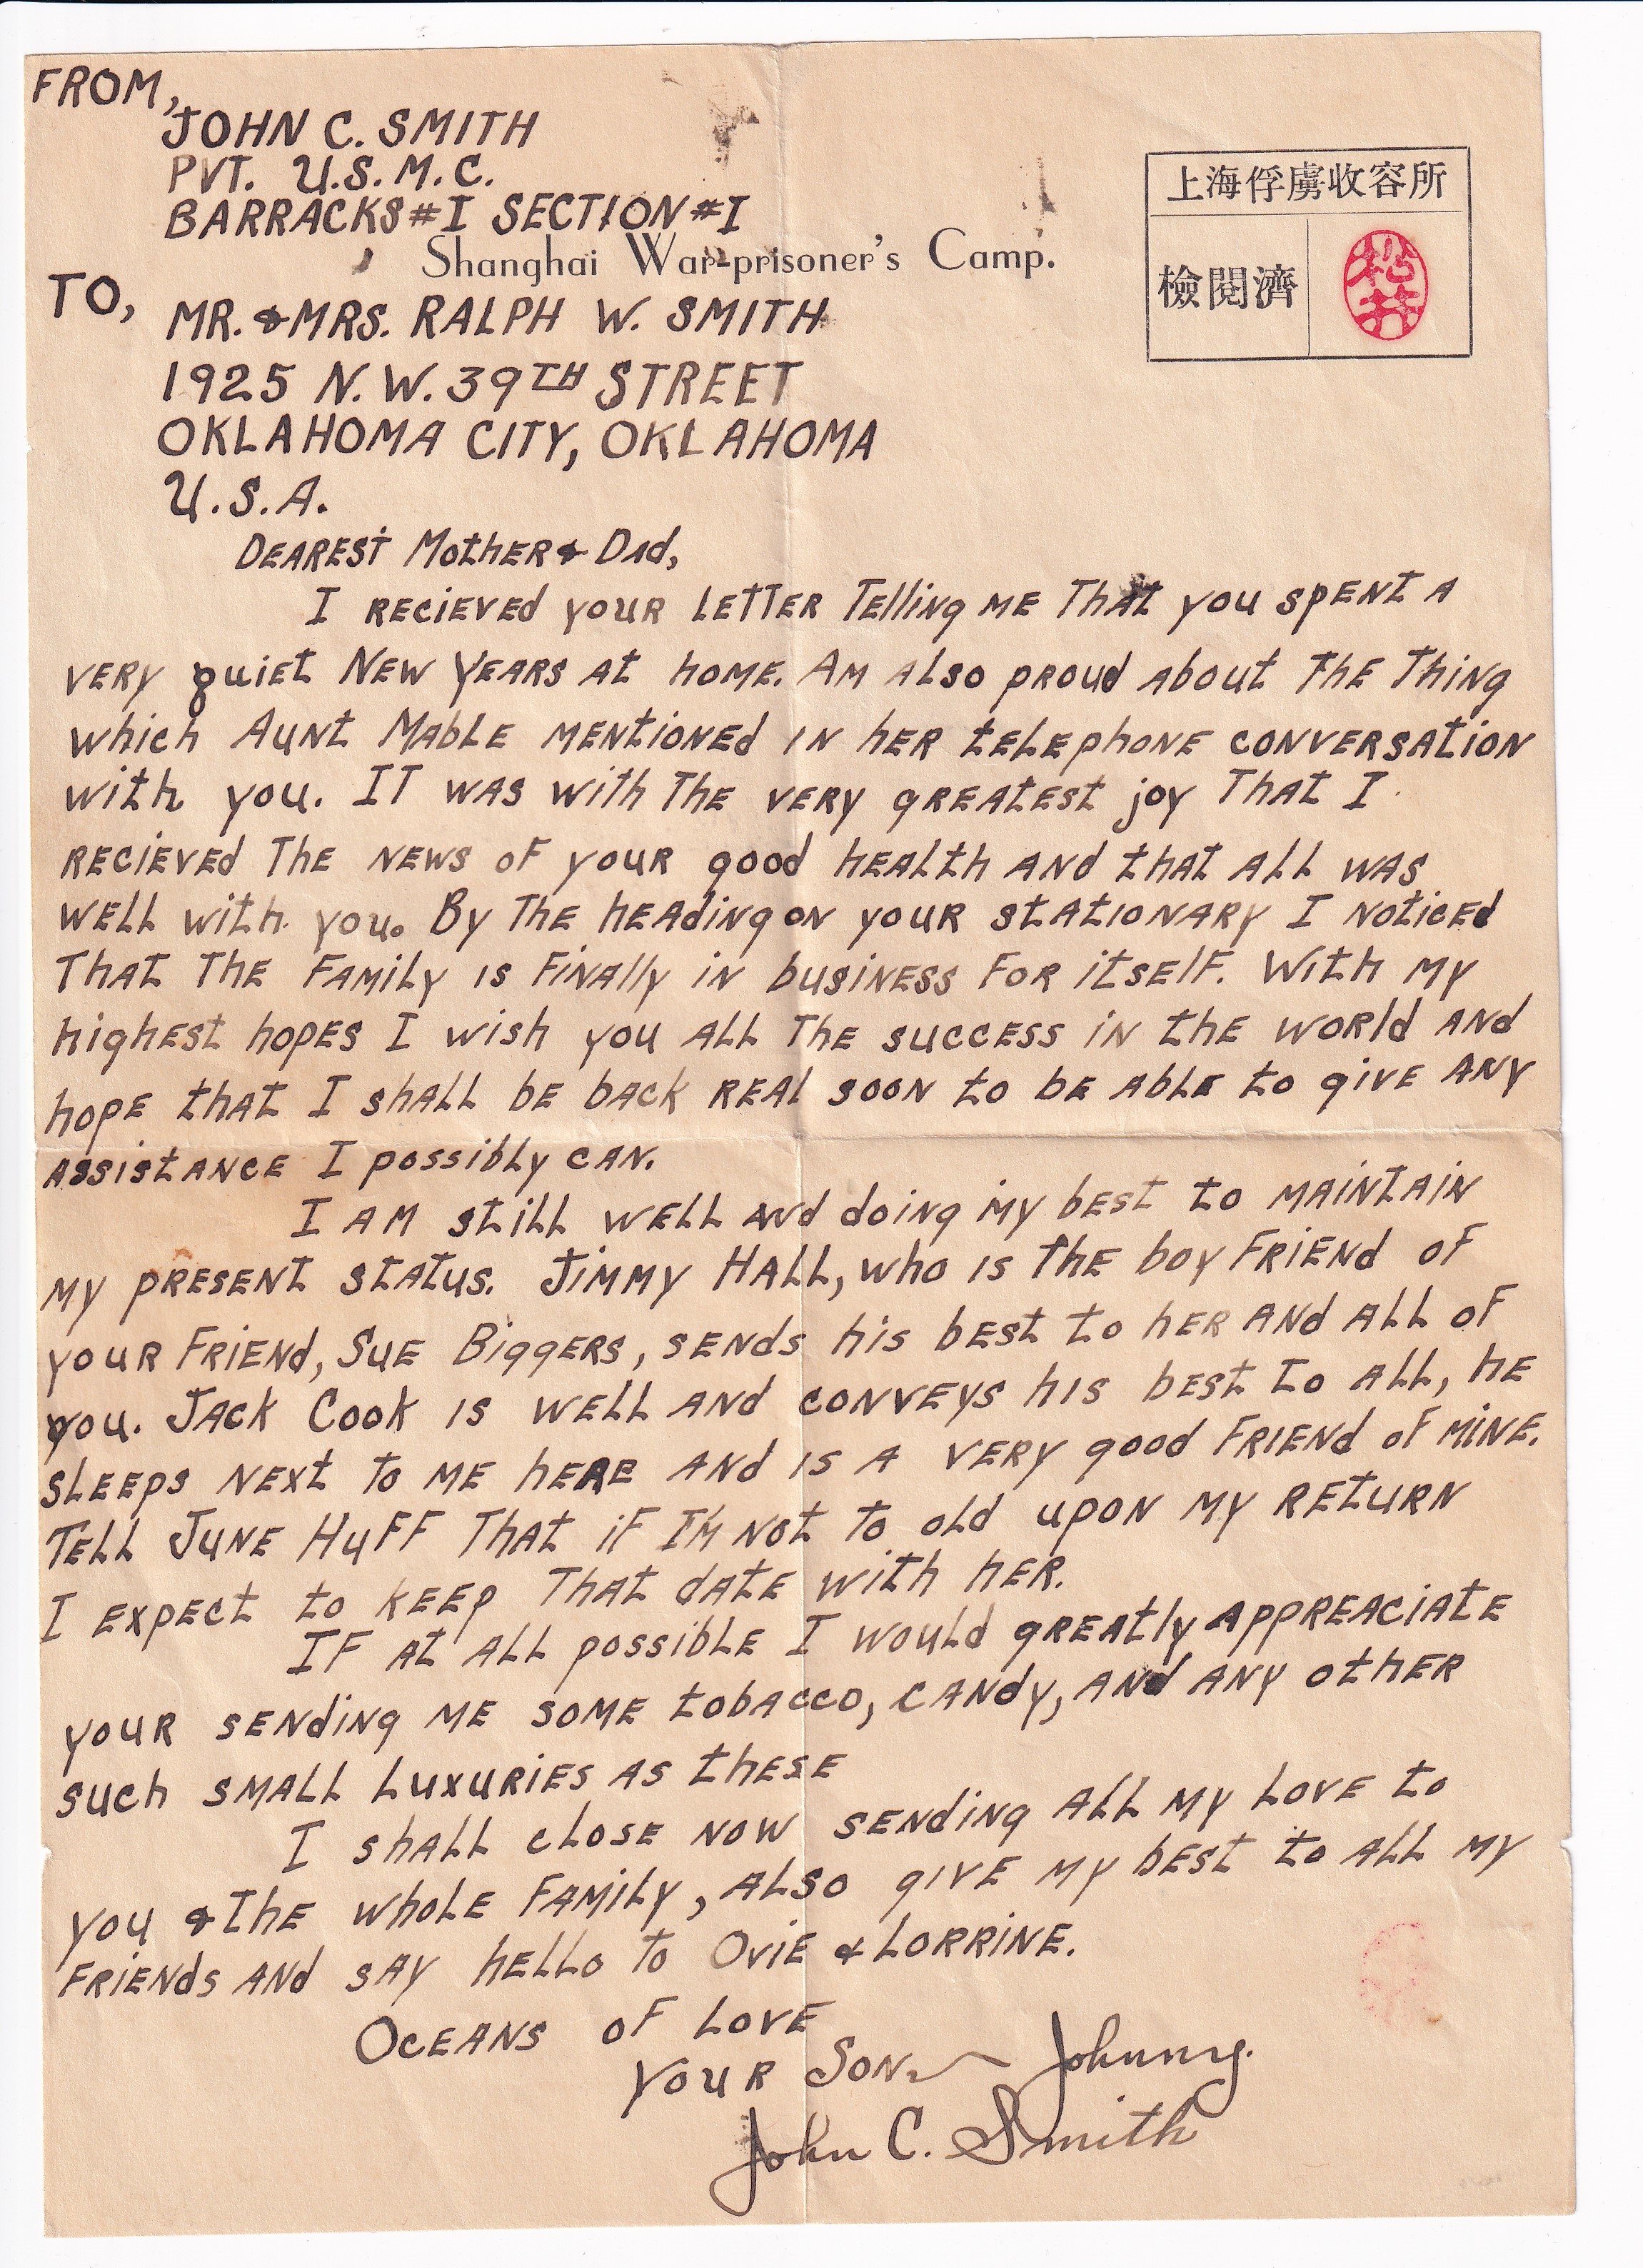 FROM,
JOHN C. SMITH
PVT. U.S.M.C.
BARRACKS #I SECTION #I
Shanghai War-prisoner's Camp.
上海俘虜收容所
檢閱濟
TO,
MR. & MRS. RALPH W. SMITH
1925 N.W. 39TH STREET
OKLAHOMA CITY, OKLAHOMA
U.S.A.
DEAREST MOTHER & DAd,
I RECIEVEd YOUR LETTER TElliNg ME THAT YOU SPENT A
VERY QUIET NEW YEARS AT hOME. AM ALSO PROUd AbOUT THE THiNg
WhiCh AUNT MAbLE MENTIONEd IN hER TELEPhONE CONVERSATION
WiTh YOU. IT WAS WiTh THE VERY gREATEST jOY THAT I
RECIEVEd THE NEWS OF YOUR gOOd hEALTh ANd ThAT ALL WAS
WELL WiTh YOU. BY THE hEAdiNg ON YOUR STATIONARY I NOTICEd
THAT THE FAMiLY IS FiNAllY iN bUSiNESS FOR iTSElF. WITh MY
highEST hOPES I WiSh YOU ALL THE SUCCESS iN ThE WORld ANd
hOPE ThAT I ShALL bE bACK REAl SOON TO bE AbLE TO giVE ANY
ASSiSTANCE I POSSibLY CAN.
I AM STiLL WELL ANd doiNg MY bEST TO MAiNTAiN
MY PRESENT STATUS. JiMMY HALL, Who IS THE bOY FRiENd OF
YOUR FRiENd, SUE BiggERS, SENdS hiS bEST TO hER ANd ALL OF
YOU. JACK COOK IS WELL ANd CONVEYS hIS bEST TO ALL, hE
SLEEPS NEXT TO ME hERE ANd IS A VERY gOOd FRIENd OF MiNE.
TELL JUNE HUFF THAT iF I'M NOT TO OLd UPON MY RETURN
I EXPECT TO KEEP THAT dATE WiTh hER.
IF AT ALL POSSibLE I WOULd gREATLY APPREACIATE
YOUR SENdiNg ME SOME TObACCO, CANdY, ANd ANY OThER
SUCh SMALL LUXURiES AS ThESE
I ShALL CLOSE NOW SENdiNg ALL MY LOVE TO
YOU & THE WhOLE FAMiLY, ALSO giVE MY bEST TO ALL MY
FRiENdS ANd SAY hELLO TO OViE & LORRiNE.
OCEANS OF LOVE
YOUR SON — Johnny.
John C. Smith